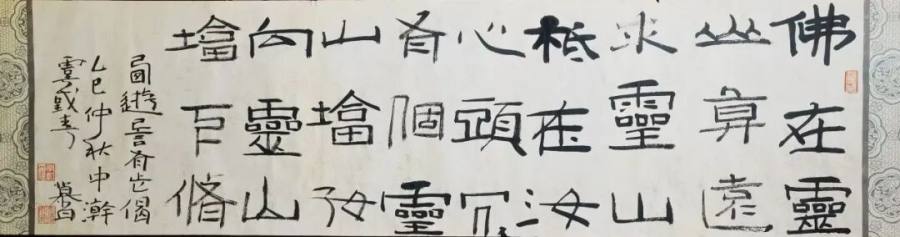 佛在靈
山莫遠
求靈山
柢在汝
心頭人々
有個靈
山塔好
向靈山
塔下修
有此偈
乙巳仲秋中澣